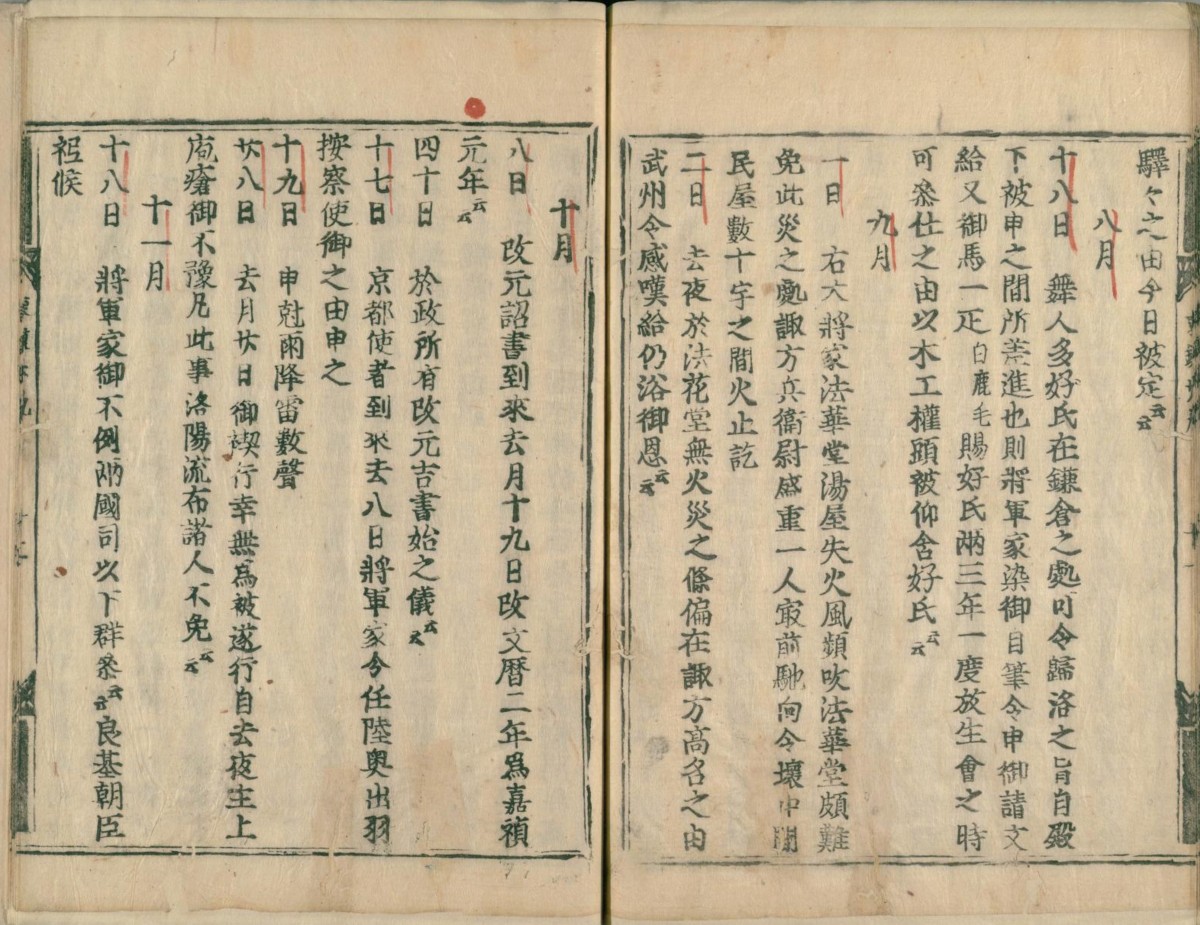 驛々之由今日被定云云
八月
十八日　舞人多好氏在鎌倉之處可令歸洛之旨自殿
下被申之間所差進也則將軍家染御自筆令申御請文
給又御馬一疋白鹿毛賜好氏兩三年一度放生會之時
可參仕之由以木工權頭被仰含好氏云云
九月
一日　右大將家法華堂湯屋失火風頻吹法華堂頗難
免此災之處諏方兵衛尉盛重一人最前馳向令壞中間
民屋數十宇之間火止訖
二日　去夜於法花堂無火災之條偏在諏方高名之由
武州令感嘆給仍浴御恩云云
十月
八日　改元詔書到來去月十九日改文暦二年爲嘉禎
元年云云
四十日　於政所有改元吉書始之儀云云
十七日　京都使者到來去八日將軍家令任陸奥出羽
按察使御之由申之
十九日　申尅雨降雷數聲
廿八日　去月廿日御禊行幸無爲被遂行自去夜主上
庖瘡御不豫凡此事洛陽流布諸人不免云云
十一月
十八日　將軍家御不例兩國司以下群參云云良基朝臣
祗候